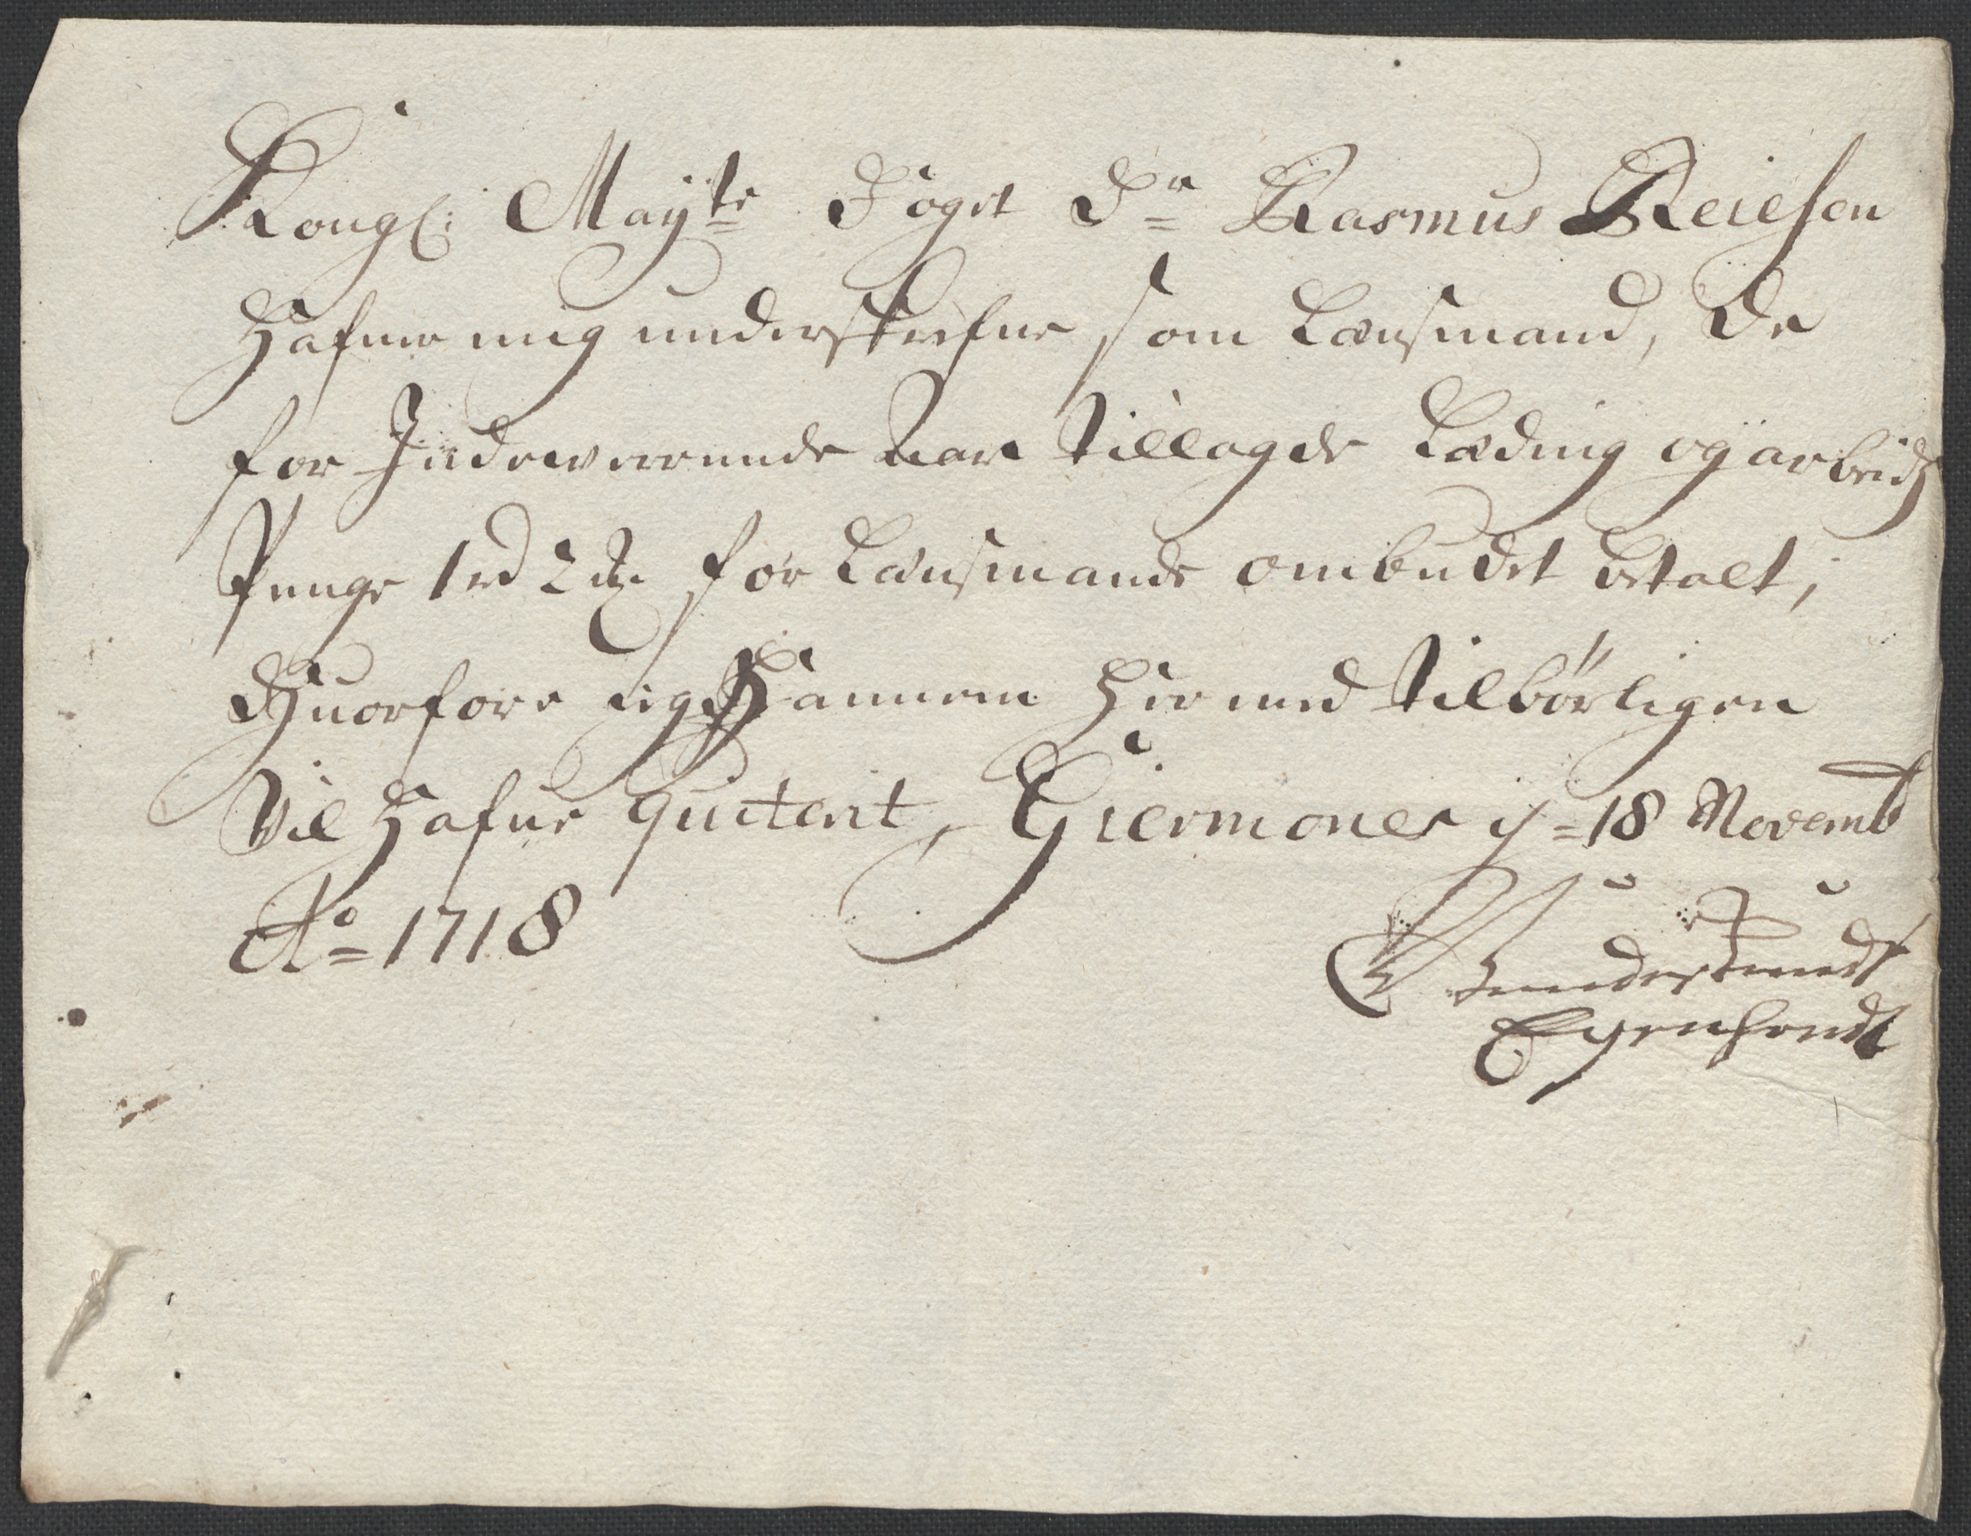 Kongl: Mayts Foget Sr Rasmus Reiersen
Hafuer mig underskrefne som Lensmand, De
for Indeverrende Aar tillagde Leding og arbeids
Penge 1 rd 2 for Lensmands ombudet betalt,
Huorfore ieg Hannem hermed tilbørligen
Vil Hafue quiterit, d: 18 Novemb
Ao 1718
Egenhendt